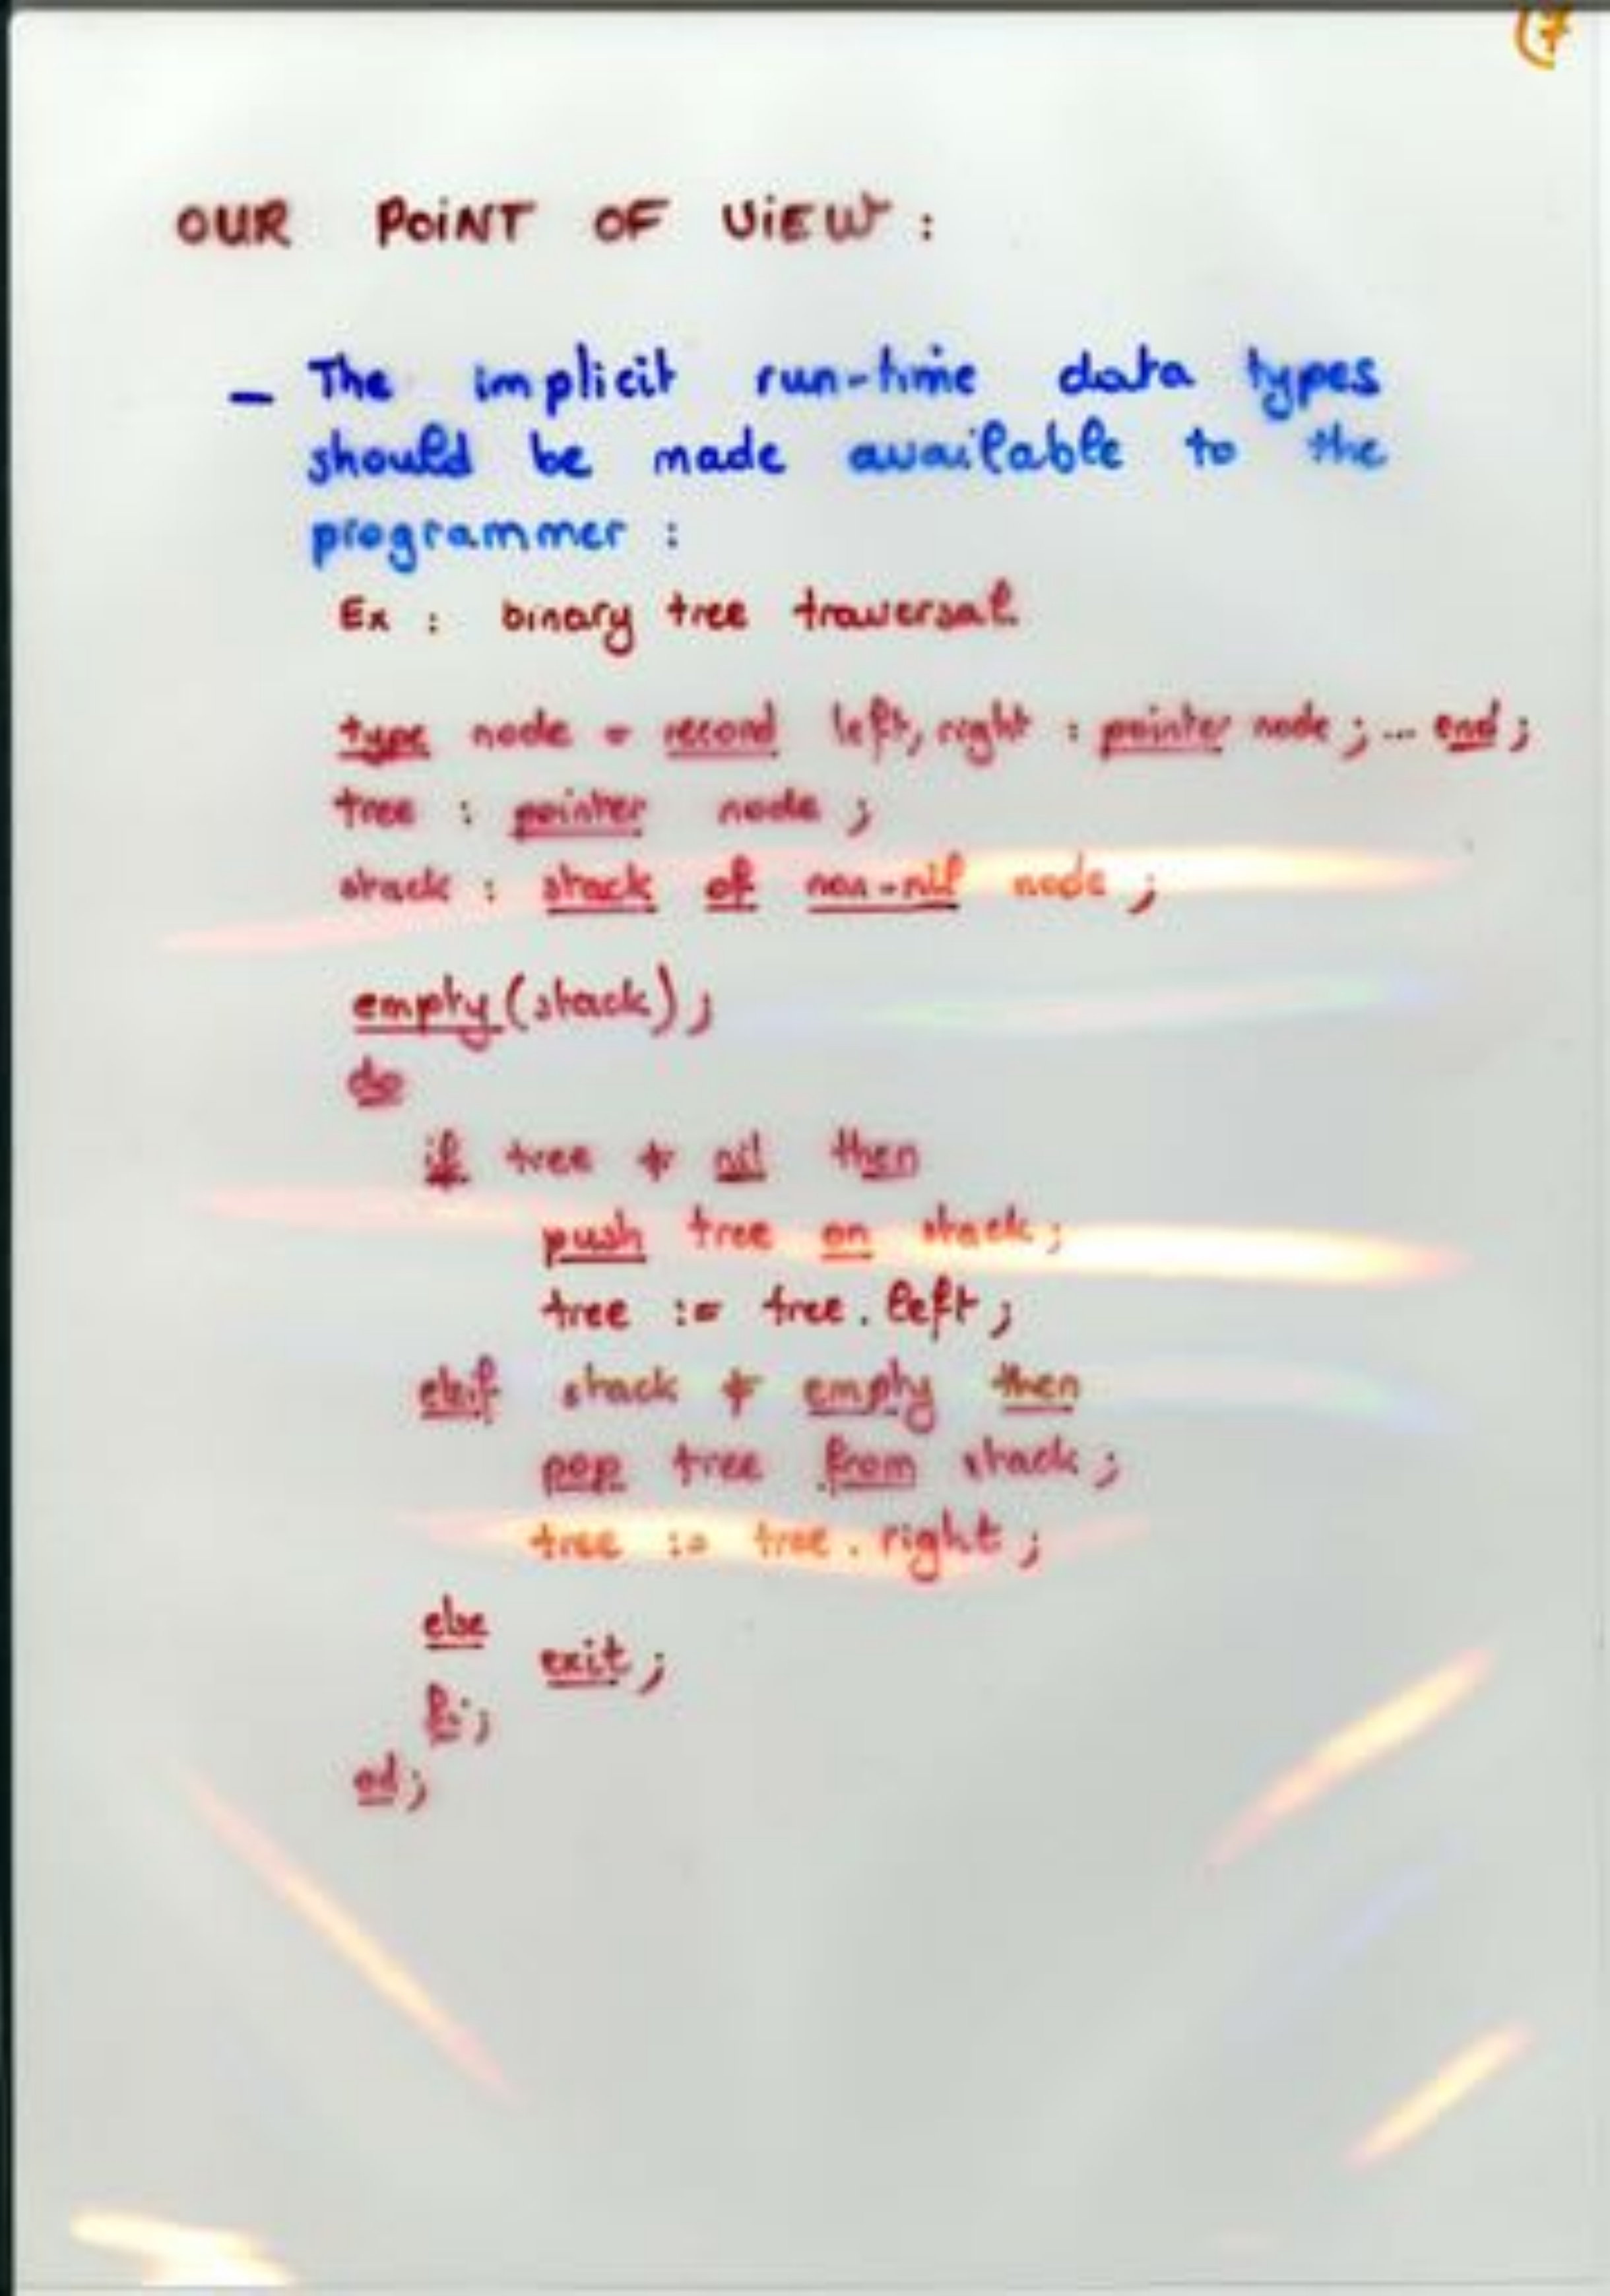 (7
OUR POiNT OF ViEW :
- The implicit run-time data types
should be made available to the
programmer :
Ex : binary tree traversal
type node = record left, right : pointer node ; ... end ;
tree : pointer node ;
stack : stack of non-nil node ;
empty (stack) ;
do
if tree ≠ nil then
push tree on stack ;
tree := tree . left ;
elsif stack ≠ empty then
pop tree from stack ;
tree := tree . right ;
else
exit ;
fi ;
od ;